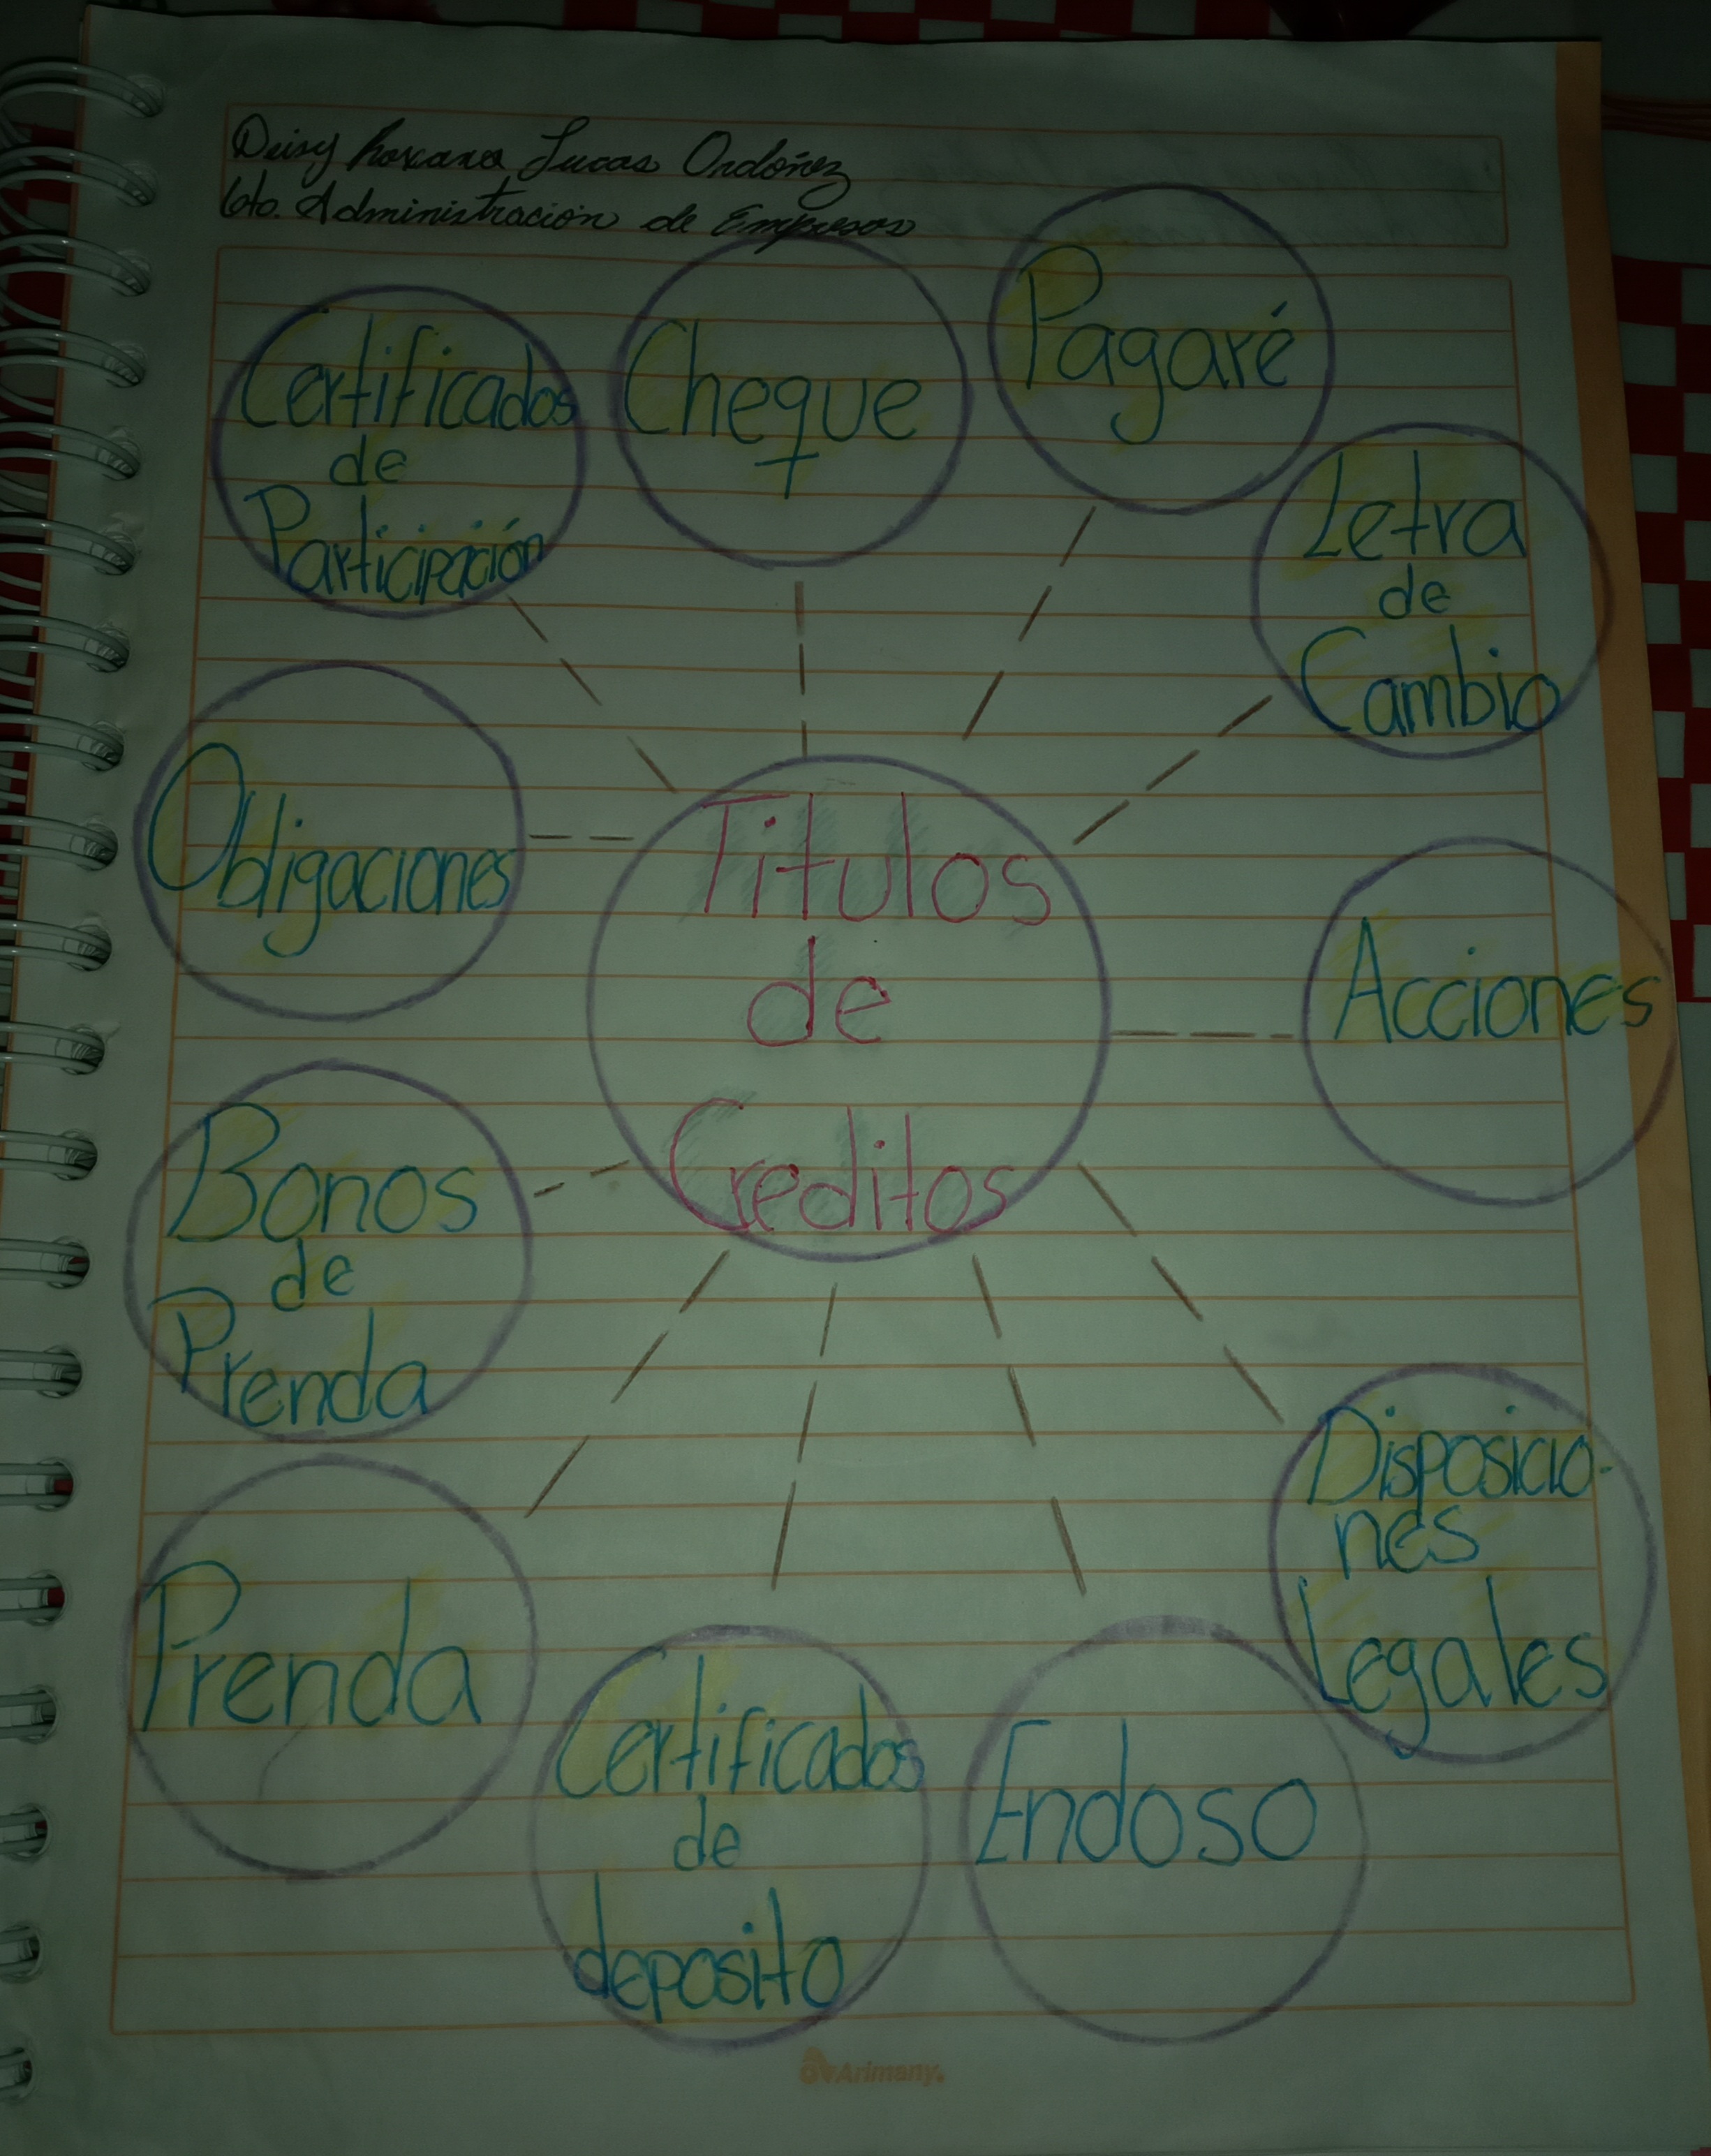 Deisy Roxana Lucas Ordóñez
6to. Administración de Empresas
Certificados
de
Participación
Cheque
Pagaré
Letra
de
Cambio
Obligaciones
Titulos
de
Creditos
Acciones
Bonos
de
Prenda
Disposicio-
nes
Legales
Prenda
Certificados
de
deposito
Endoso
Arimany.